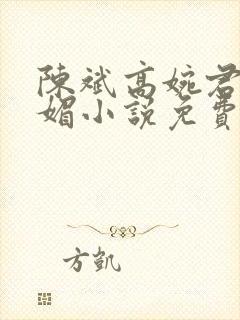 陳斌高婉君
媚小說免費
方凱